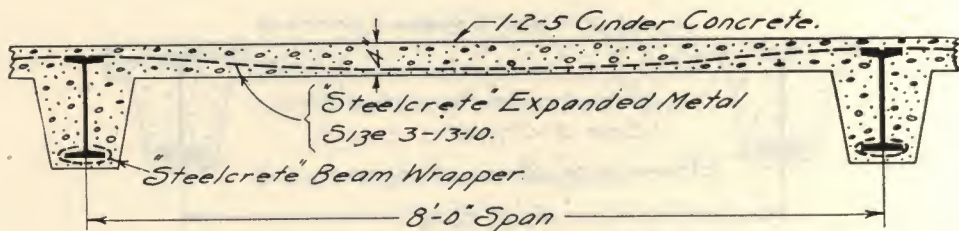 1-2-5 Cinder Concrete.
4"
"Steelcrete" Expanded Metal
Size 3-13-10.
"Steelcrete" Beam Wrapper
8'-0" Span